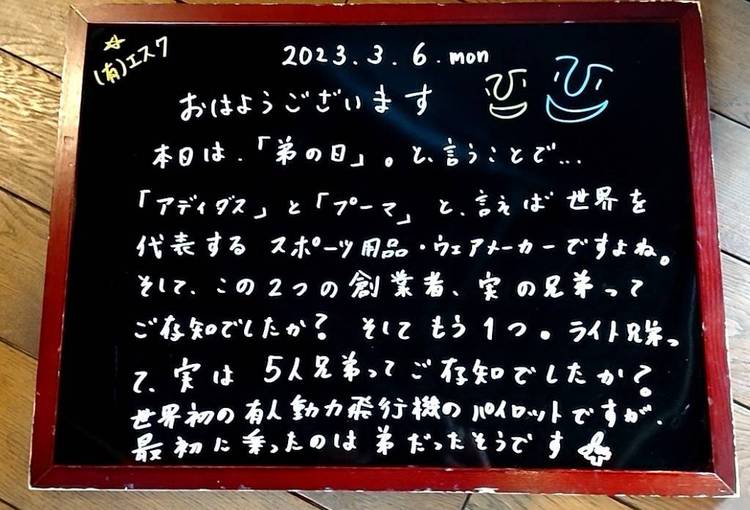 (有)エスク
2023.3.6.mon
おはようございます
本日は、「弟の日」。と、言うことで...
「アディダス」と「プーマ」と、言えば世界を
代表するスポーツ用品・ウェアメーカーですよね。
そして、この2つの創業者、実の兄弟って
ご存知でしたか?そしてもう1つ。ライト兄弟っ
て、実は5人兄弟ってご存知でしたか?
世界初の有人動力飛行機のパイロットですが、
最初に乗ったのは弟だったそうです